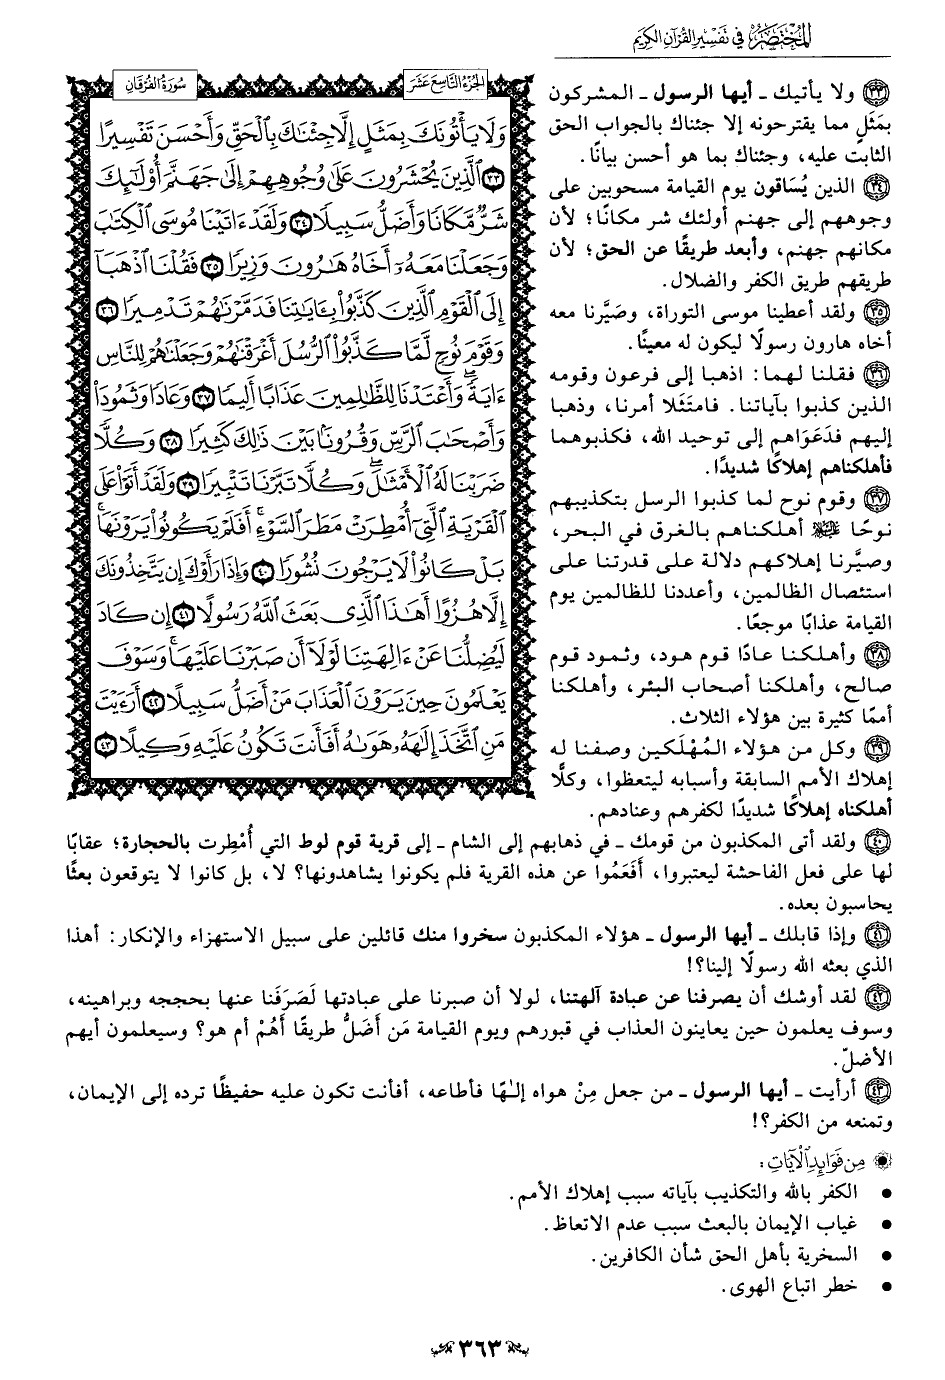 المختصر في تفسير القرآن الكريم
الجزء التاسع عشر
سورة الفرقان
وَلَا يَأْتُونَكَ بِمَثَلٍ إِلَّا جِئْنَٰكَ بِٱلْحَقِّ وَأَحْسَنَ تَفْسِيرًا
٣٣ ٱلَّذِينَ يُحْشَرُونَ عَلَىٰ وُجُوهِهِمْ إِلَىٰ جَهَنَّمَ أُو۟لَٰٓئِكَ
شَرٌّ مَّكَانًا وَأَضَلُّ سَبِيلًا ٣٤ وَلَقَدْ ءَاتَيْنَا مُوسَى ٱلْكِتَٰبَ
وَجَعَلْنَا مَعَهُۥٓ أَخَاهُ هَٰرُونَ وَزِيرًا ٣٥ فَقُلْنَا ٱذْهَبَآ
إِلَى ٱلْقَوْمِ ٱلَّذِينَ كَذَّبُوا۟ بِـَٔايَٰتِنَا فَدَمَّرْنَٰهُمْ تَدْمِيرًا ٣٦
وَقَوْمَ نُوحٍ لَّمَّا كَذَّبُوا۟ ٱلرُّسُلَ أَغْرَقْنَٰهُمْ وَجَعَلْنَٰهُمْ لِلنَّاسِ
ءَايَةً ۖ وَأَعْتَدْنَا لِلظَّٰلِمِينَ عَذَابًا أَلِيمًا ٣٧ وَعَادًا وَثَمُودَا۟
وَأَصْحَٰبَ ٱلرَّسِّ وَقُرُونًۢا بَيْنَ ذَٰلِكَ كَثِيرًا ٣٨ وَكُلًّا
ضَرَبْنَا لَهُ ٱلْأَمْثَٰلَ ۖ وَكُلًّا تَبَّرْنَا تَتْبِيرًا ٣٩ وَلَقَدْ أَتَوْا۟ عَلَى
ٱلْقَرْيَةِ ٱلَّتِىٓ أُمْطِرَتْ مَطَرَ ٱلسَّوْءِ ۚ أَفَلَمْ يَكُونُوا۟ يَرَوْنَهَا ۚ
بَلْ كَانُوا۟ لَا يَرْجُونَ نُشُورًا ٤٠ وَإِذَا رَأَوْكَ إِن يَتَّخِذُونَكَ
إِلَّا هُزُوًا أَهَٰذَا ٱلَّذِى بَعَثَ ٱللَّهُ رَسُولًا ٤١ إِن كَادَ
لَيُضِلُّنَا عَنْ ءَالِهَتِنَا لَوْلَآ أَن صَبَرْنَا عَلَيْهَا ۚ وَسَوْفَ
يَعْلَمُونَ حِينَ يَرَوْنَ ٱلْعَذَابَ مَنْ أَضَلُّ سَبِيلًا ٤٢ أَرَءَيْتَ
مَنِ ٱتَّخَذَ إِلَٰهَهُۥ هَوَىٰهُ أَفَأَنتَ تَكُونُ عَلَيْهِ وَكِيلًا ٤٣
٣٣ ولا يأتيك ـ أيها الرسول ـ المشركون
بمَثَلٍ مما يقترحونه إلا جئناك بالجواب الحق
الثابت عليه، وجئناك بما هو أحسن بيانًا.
٣٤ الذين يُسَاقون يوم القيامة مسحوبين على
وجوههم إلى جهنم أولئك شر مكانًا؛ لأن
مكانهم جهنم، وأبعد طريقًا عن الحق؛ لأن
طريقهم طريق الكفر والضلال.
٣٥ ولقد أعطينا موسى التوراة، وصَيَّرنا معه
أخاه هارون رسولًا ليكون له معينًا.
٣٦ فقلنا لهما: اذهبا إلى فرعون وقومه
الذين كذبوا بآياتنا. فامتَثَلا أمرنا، وذهبا
إليهم فدَعَوَاهم إلى توحيد الله، فكذبوهما
فأهلكناهم إهلاكًا شديدًا.
٣٧ وقوم نوح لما كذبوا الرسل بتكذيبهم
نوحًا ﷺ أهلكناهم بالغرق في البحر،
وصيَّرنا إهلاكهم دلالة على قدرتنا على
استئصال الظالمين، وأعددنا للظالمين يوم
القيامة عذابًا موجعًا.
٣٨ وأهلكنا عادًا قوم هود، وثمود قوم
صالح، وأهلكنا أصحاب البئر، وأهلكنا
أممًا كثيرة بين هؤلاء الثلاث.
٣٩ وكل من هؤلاء المُهْلَكين وصفنا له
إهلاك الأمم السابقة وأسبابه ليتعظوا، وكلًّا
أهلكناه إهلاكًا شديدًا لكفرهم وعنادهم.
٤٠ ولقد أتى المكذبون من قومك ـ في ذهابهم إلى الشام ـ إلى قرية قوم لوط التي أُمْطِرت بالحجارة؛ عقابًا
لها على فعل الفاحشة ليعتبروا، أَفَعَمُوا عن هذه القرية فلم يكونوا يشاهدونها؟ لا، بل كانوا لا يتوقعون بعثًا
يحاسبون بعده.
٤١ وإذا قابلك ـ أيها الرسول ـ هؤلاء المكذبون سخروا منك قائلين على سبيل الاستهزاء والإنكار: أهذا
الذي بعثه الله رسولًا إلينا؟!
٤٢ لقد أوشك أن يصرفنا عن عبادة آلهتنا، لولا أن صبرنا على عبادتها لَصَرَفَنا عنها بحججه وبراهينه،
وسوف يعلمون حين يعاينون العذاب في قبورهم ويوم القيامة مَن أَضَلُّ طريقًا أَهُمْ أم هو؟ وسيعلمون أيهم
الأضلّ.
٤٣ أرأيت ـ أيها الرسول ـ من جعل مِنْ هواه إلـٰهًا فأطاعه، أفأنت تكون عليه حفيظًا ترده إلى الإيمان،
وتمنعه من الكفر؟!
من فوائد الآيات:
• الكفر بالله والتكذيب بآياته سبب إهلاك الأمم.
• غياب الإيمان بالبعث سبب عدم الاتعاظ.
• السخرية بأهل الحق شأن الكافرين.
• خطر اتباع الهوى.
٣٦٣